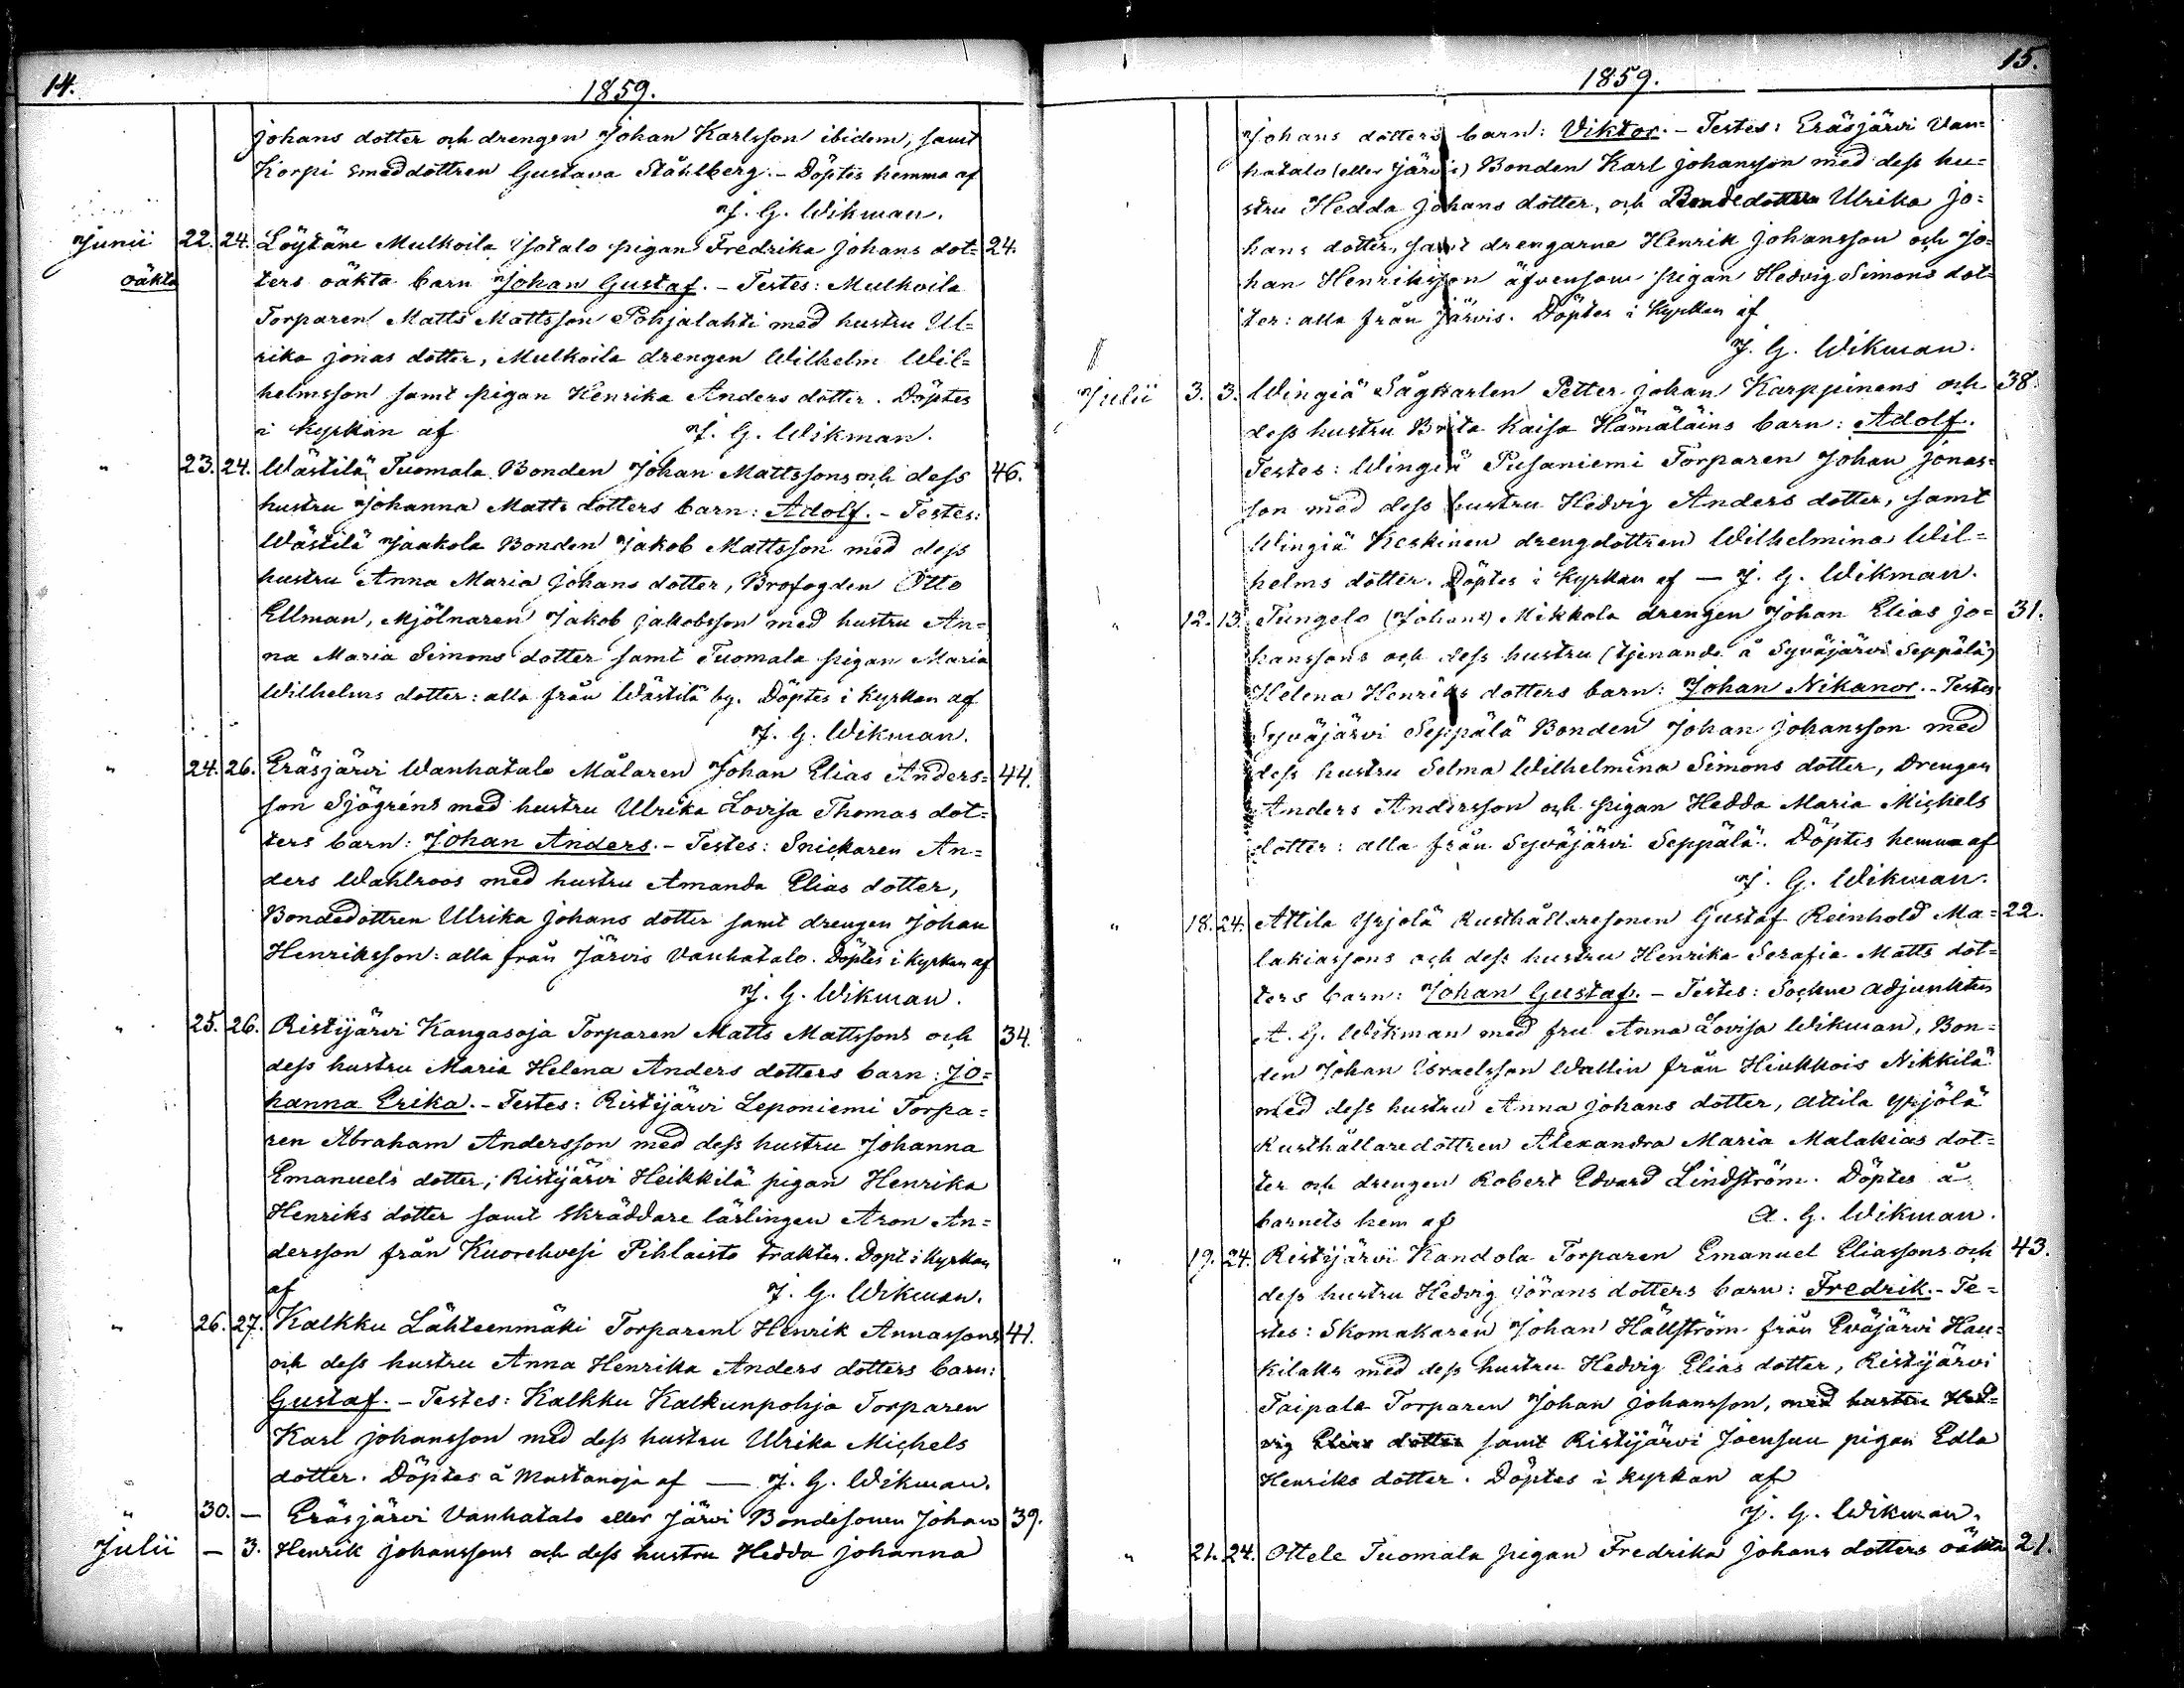 14.
1859.
Johans dotter och drengen Johan Karlsson ibidem, samt
Korpi smeddottren Gustava Ståhlberg. - Döptes hemma af
J. G. Wikman.
Junii 22. 24. Löytäne Mulkoila Isotalo pigan Fredrika Johans dot= 24.
oäkta ters oäkta barn Johan Gustaf. - Testes: Mulkoila
Torparen Matts Mattsson Pohjalahti med hustru Ul=
rika Jonas dotter, Mulkoila drengen Wilhelm Wil=
helmsson samt pigan Henrika Anders dotter. Döptes
i kyrkan af J. G. Wikman.
" 23. 24. Wästilä Tuomala Bonden Johan Mattssons och dess 46.
hustru Johanna Matts dotters barn: Adolf. - Testes:
Wästilä Jaakola Bonden Jakob Mattsson med dess
hustru Anna Maria Johans dotter, Brofogden Otto
Ellman, Mjölnaren Jakob Jakobsson med hustru An=
na Maria Simons dotter samt Tuomala pigan Maria
Wilhelms dotter: alla från Wästilä by. Döptes i kyrkan af
J. G. Wikman.
" 24. 26. Eräsjärvi Wanhatalo Målaren Johan Elias Anders= 44.
son Sjögréns med hustru Ulrika Lovisa Thomas dot=
ters barn: Johan Anders. - Testes: Snickaren An=
ders Wahlroos med hustru Amanda Elias dotter,
Bondedottren Ulrika Johans dotter samt drengen Johan
Henriksson: alla från Järvis Vanhatalo. Döptes i kyrkan af
J. G. Wikman.
" 25. 26. Ristijärvi Kangasoja Torparen Matts Mattssons och 34.
dess hustru Maria Helena Anders dotters barn: Jo=
hanna Erika. - Testes: Ristijärvi Leponiemi Torpa=
ren Abraham Andersson med dess hustru Johanna
Emanuels dotter; Ristijärvi Heikkilä pigan Henrika
Henriks dotter samt skräddare lärlingen Aron An=
dersson från Kuorehvesi Pihlaisto trakten. Döpt i kyrkan
af J. G. Wikman.
" 26. 27. Kalkku Lähteenmäki Torparen Henrik Annassons 41.
och dess hustru Anna Henrika Anders dotters barn:
Gustaf. - Testes: Kalkku Kalkunpohja Torparen
Karl Johansson med dess hustru Ulrika Michels
dotter. Döptes å Mustanoja af — J. G. Wikman.
" 30. — Eräsjärvi Vanhatalo eller Järvi Bondesonen Johan 39.
Julii — 3. Henrik Johanssons och dess hustru Hedda Johanna
15.
1859.
Johans dotters barn: Viktor. - Testes: Eräsjärvi Van=
hatalo (eller Järvi) Bonden Karl Johansson med dess hu=
stru Hedda Johans dotter, och Bondedottren Ulrika Jo=
hans dotter, samt drengarne Henrik Johansson och Jo=
han Henriksson äfvensom pigan Hedvig Simons dot=
ter: alla från Järvis. Döptes i Kyrkan af
J. G. Wikman.
Julii 3. 3. Wingiä Sågkarlen Petter Johan Karppinens och 38.
dess hustru Brita Kaisa Hämäläins barn: Adolf.
Testes: Wingiä Pusaniemi Torparen Johan Jonas=
son med dess hustru Hedvig Anders dotter, samt
Wingiä Keskinen drengdottren Wilhelmina Wil=
helms dotter. Döptes i kyrkan af — J. G. Wikman.
" 12. 13. Tungelo (Johans) Mikkola drengen Johan Elias Jo= 31.
hanssons och dess hustru (tjenande å Syväjärvi Seppälä)
Helena Henriks dotters barn: Johan Nikanor. - Testes:
Syväjärvi Seppälä Bonden Johan Johansson med
dess hustru Selma Wilhelmina Simons dotter, Drengen
Anders Andersson och pigan Hedda Maria Michels
dotter: alla från Syväjärvi Seppälä. Döptes hemma af
J. G. Wikman.
" 18. 24. Attila Yrjölä Rusthållaresonen Gustaf Reinhold Ma= 22.
lakiassons och dess hustru Henrika Serafia Matts dot=
ters barn: Johan Gustaf. - Testes: Sockne adjunkten
A. G. Wikman med fru Anna Lovisa Wikman, Bon=
den Johan Israelsson Wallin från Hiukkois Nikkilä
med dess hustru Anna Johans dotter, Attila Yrjölä
Rusthållaredottren Alexandra Maria Malakias dot=
ter och drengen Robert Edvard Lindström. Döptes å
barnets hem af A. G. Wikman.
" 19. 24. Ristijärvi Kandola Torparen Emanuel Eliassons och 43.
dess hustru Hedvig Jörans dotters barn: Fredrik. - Te=
stes: Skomakaren Johan Hällström från Eväjärvi Hau=
kilaks med dess hustru Hedvig Elias dotter, Ristijärvi
Taipale Torparen Johan Johansson, med hustru Hed=
vig Elias dotter samt Ristijärvi Joensuu pigan Edla
Henriks dotter. Döptes i kyrkan af
J. G. Wikman.
" 21. 24. Ottele Tuomala pigan Fredrika Johans dotters oäkta 21.